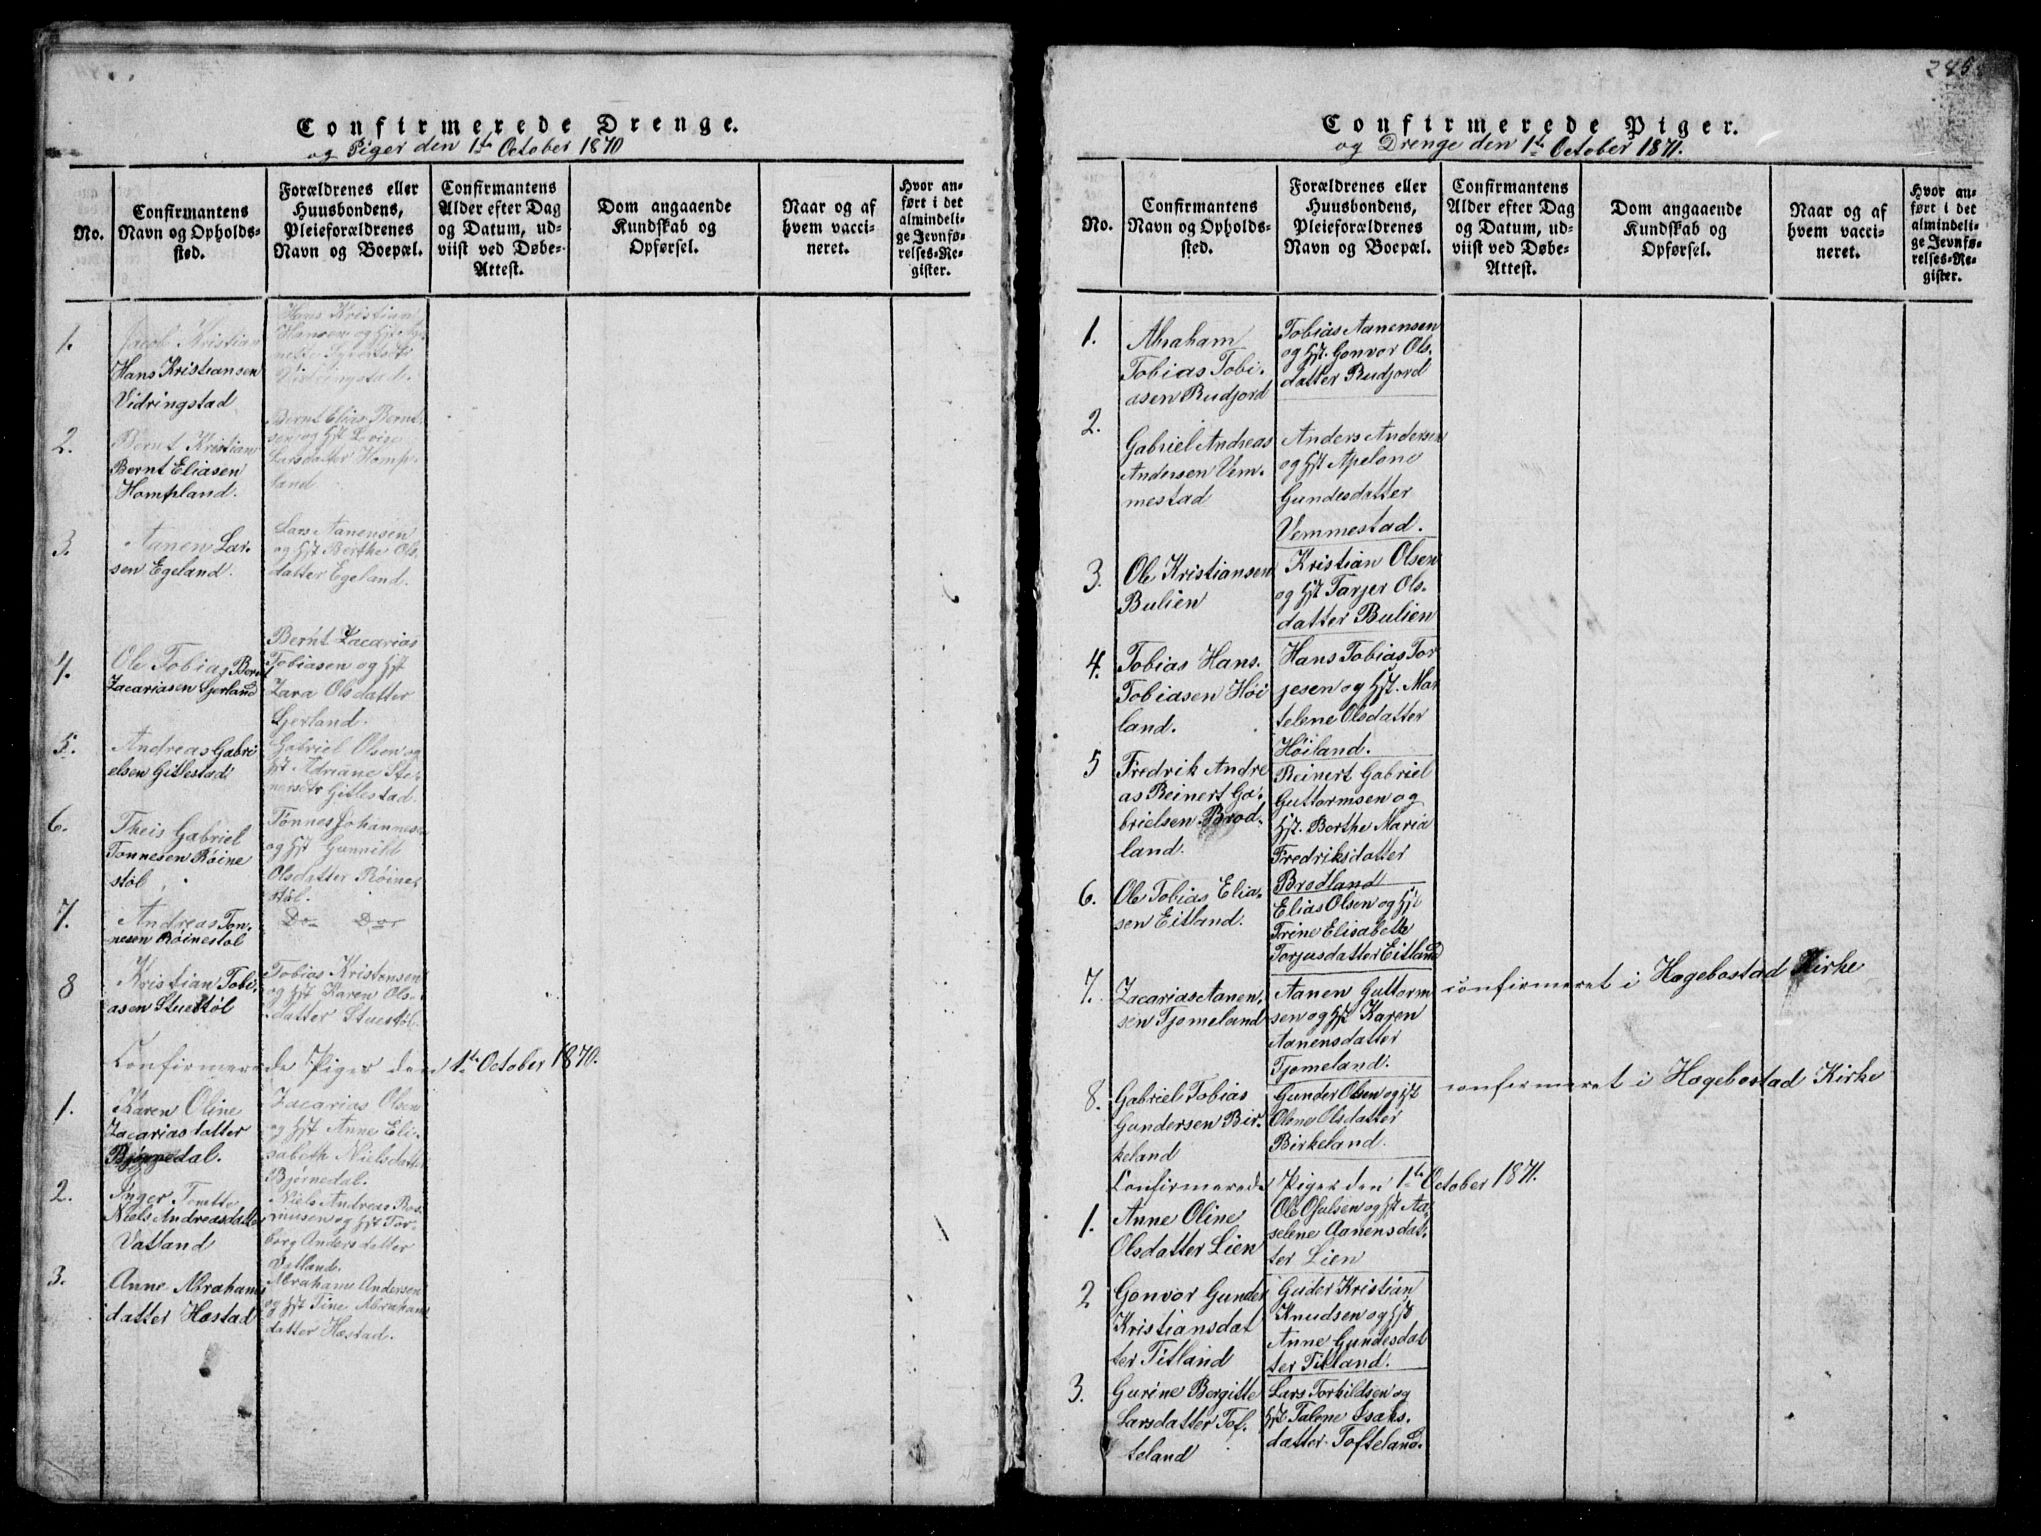 Confirmerede Drenge.
og Piger den 1ste October 1870
No.
Confirmantens
Navn og Opholds-
sted.
Forældrenes eller
Huusbondens,
Pleieforældrenes
Navn og Boepæl.
Confirmantens
Alder efter Dag
og Datum, ud-
viist ved Døbe-
Attest.
Dom angaaende
Kundskab og
Opførsel.
Naar og af
hvem vacci-
neret.
Hvor an-
ført i det
almindeli-
ge Jevnfø-
relses-Re-
gister.
1.
Jacob Kristian
Hans Kristiansen
Vidringstad
Hans Kristian
Hansen og Hst
Vidringstad.
2.
Bernt Kristian
Bernt Eliasen
Hompland.
Bernt Elias Bernt
sen og Hst Lovise
Larsdatter Homp-
land
3.
Aanen Lar-
sen Egeland.
Lars Aanensen
og Hst Berthe Ols-
datter Egeland.
4.
Ole Tobias Bernt
Zacariasen Gjerland
Bernt Zacarias
Tobiasen og Hst
Zara Olsdatter
Gjerland.
5.
Andreas Gabri
elsen Gitlestad
Gabriel Olsen og
Hst Adriane Ste-
nersdtr Gitlestad.
6.
Theis Gabriel
Tonnesen Röine
stöl
Tönnes Johannesen
og Hst Gunnild
Olsdatter Röine-
stöl.
7.
Andreas Ton-
nesen Röinestöl
Do Do
8
Kristian Tobi-
asen Stuestöl
Tobias Kristensen
og Hst Karen Ols-
datter Stuestöl.
Confirmerede Piger den 1ste October 1870.
1.
Karen Oline
Zacariasdatter
Bjørnedal.
Zacarias Olsen
og Hst Anne Eli-
sabeth Nielsdatter
Bjørnedal.
2.
Inger Tomtte
Niels Andreasdatter
Vatland
Niels Andreas Ras-
musen og Hst Tor-
borg Andersdatter
Vatland.
3.
Anne Abrahams
datter Hæstad
Abraham Andersen
og Hst Tine Abrahams
datter Hæstad.
285
Confirmerede Piger.
og Drenge den 1ste October 1871.
No.
Confirmantens
Navn og Opholds-
sted.
Forældrenes eller
Huusbondens,
Pleieforældrenes
Navn og Boepæl.
Confirmantens
Alder efter Dag
og Datum, ud-
viist ved Døbe-
Attest.
Dom angaaende
Kundskab og
Opførsel.
Naar og af
hvem vacci-
neret.
Hvor an-
ført i det
almindeli-
ge Jevnfø-
relses-Re-
gister.
1.
Abraham
Tobias Tobi-
asen Rudjord
Tobias Aanensen
og Hst. Gonvor Ols-
datter Rudjord
2.
Gabriel Andreas
Andersen Vem-
mestad
Anders Andersen
og Hst Apelone
Gundesdatter
Vemmestad.
3.
Ole Kristiansen
Bulien
Kristian Olsen
og Hst Tarjer Ols-
datter Bulien
4.
Tobias Hans
Tobiasen Höi
land.
Hans Tobias Tor
jesen og Hst. Mar
telene Olsdatter
Höiland.
5
Fredrik Andre
as Reinert Ga-
brielsen Brød-
land.
Reinert Gabriel
Guttormsen og
Hst. Berthe Maria
Fredriksdatter
Brødland
6.
Ole Tobias Elia-
sen Eitland.
Elias Olsen og Hst
Torine Elisabeth
Torjusdatter Eitland
7.
Zacarias Aanen-
sen Tjomeland
Aanen Guttorm
sen og Hst Karen
Aanensdatter
Tjomeland.
confirmeret i Hægebostad Kirke
8.
Gabriel Tobias
Gundersen Bir-
keland
Gunder Olsen og Hst
Olene Olsdatter
Birkeland.
confirmeret i Hægebostad Kirke
Confirmerede Piger den 1ste October 1871.
1.
Anne Oline
Olsdatter Lien
Ole Osulsen og Hst Aa-
selene Aanensdat-
ter Lien
2
Gonvor Gunder
Kristiansdat
ter Titland
Guder Kristian
Knudsen og Hst
Anne Gundesdat
ter Titland.
3.
Gurine Bergitte
Larsdatter Tof-
teland
Lars Torkildsen og
Hst Talene Isaks-
datter Tofteland.